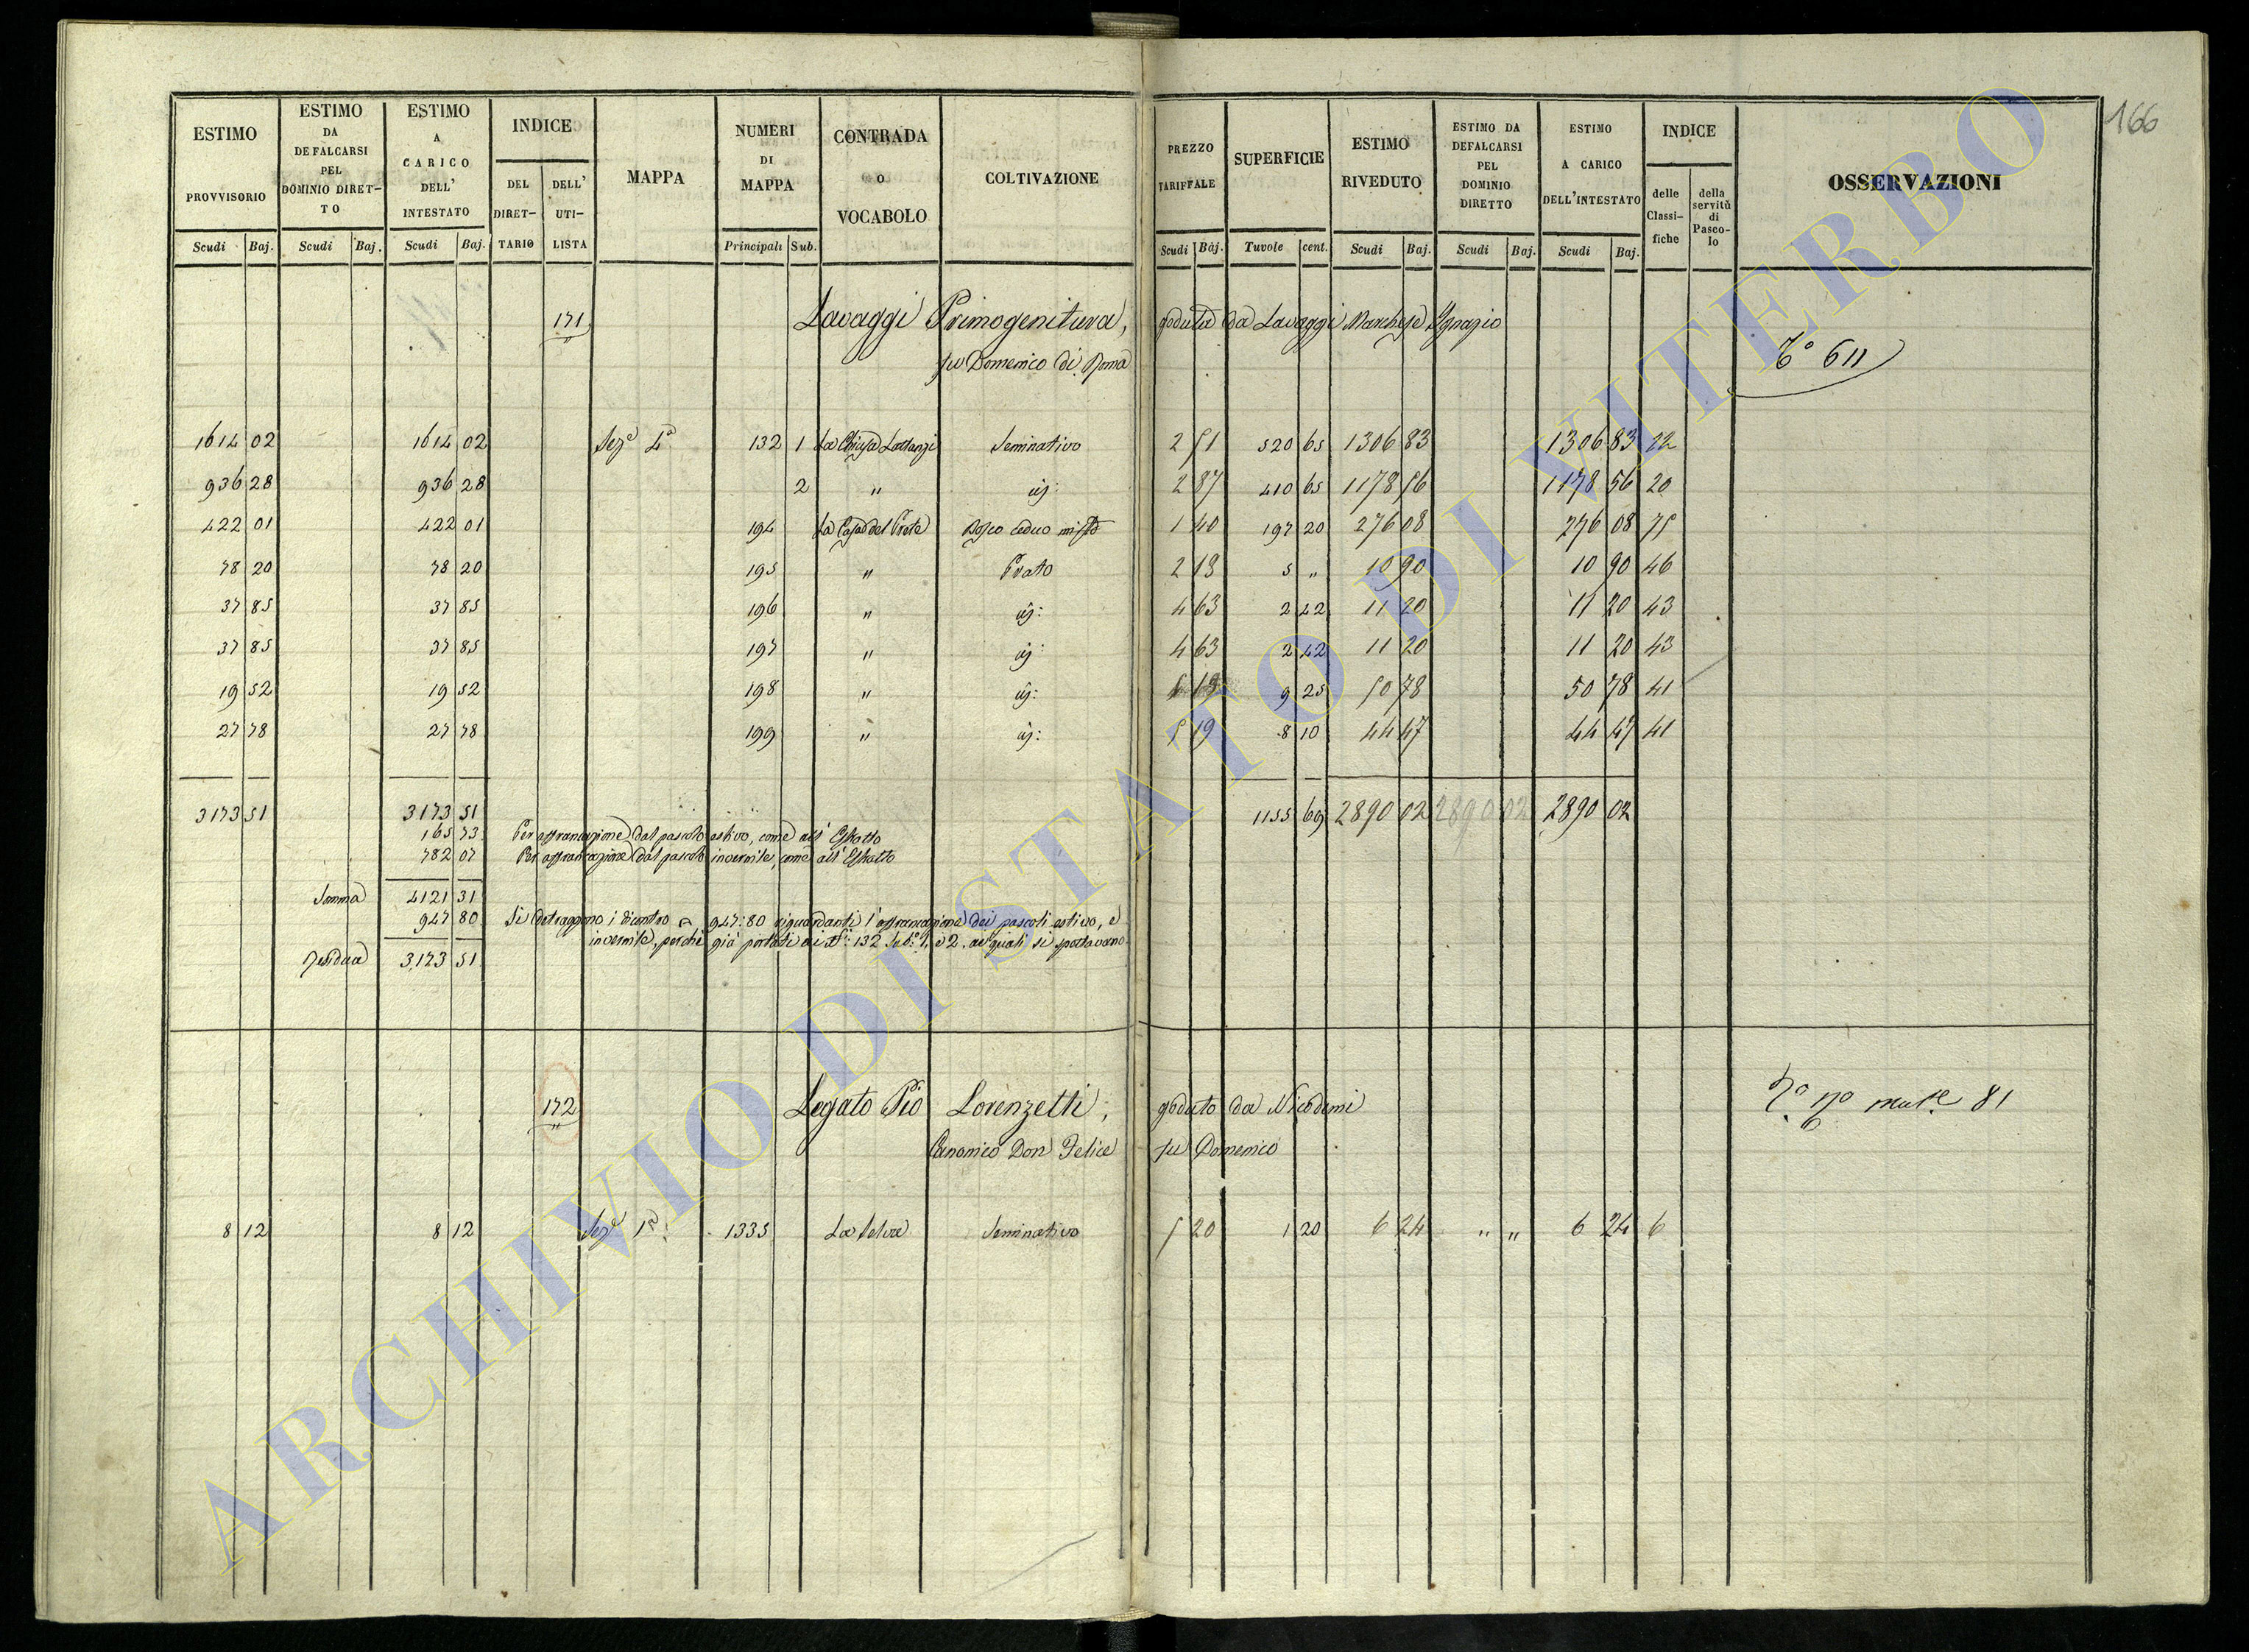 166
ESTIMO PROVVISORIO Scudi Baj.
ESTIMO DA DEFALCARSI PEL DOMINIO DIRET-TO Scudi Baj.
ESTIMO A CARICO DELL' INTESTATO Scudi Baj.
INDICE DEL DIRET-TARIO DELL' UTI-LISTA
MAPPA
NUMERI DI MAPPA Principali Sub.
CONTRADA O VOCABOLO
COLTIVAZIONE
PREZZO TARIFFALE Scudi Baj.
SUPERFICIE Tuvole cent.
ESTIMO RIVEDUTO Scudi Baj.
ESTIMO DA DEFALCARSI PEL DOMINIO DIRETTO Scudi Baj.
ESTIMO A CARICO DELL'INTESTATO Scudi Baj.
INDICE delle Classi-fiche della servitù di Pasco-lo
OSSERVAZIONI
171 Lavaggi Primogenitura, goduta da Lavaggi Marchese Ignazio
fu Domenico di Roma
611
1614 02 1614 02 Sezе 4a 132 1 La Chiusa Lattanzi Seminativo 2 51 520 65 1306 83 1306 83 22
936 28 936 28 2 " id: 2 87 410 65 1178 56 1178 56 20
422 01 422 01 194 La Casa del Prete Bosco ceduo misto 1 40 197 20 276 08 276 08 75
78 20 78 20 195 " Prato 2 18 5 " 10 90 10 90 46
37 85 37 85 196 " id: 4 63 2 42 11 20 11 20 43
37 85 37 85 197 " id: 4 63 2 42 11 20 11 20 43
19 52 19 52 198 " id: 9 25 50 78 50 78 41
27 78 27 78 199 " id: 5 19 8 10 44 47 44 47 41
3173 51 3173 51 1155 69 2890 02 2890 02 2890 02
165 73 Per affrancazione dal pascolo estivo, come all'Estratto
782 07 Per affrancazione dal pascolo invernile, come all'Estratto
Somma 4121 31
947 80 Si detraggono i dicontro 947:80 riguardanti l'affrancazione dei pascoli estivo, e
invernile, perchè già portati ai Ni: 132 Sub: 1, e 2, ai quali si spettavano
Residua 3173 51
172 Legato Pio Lorenzetti, goduto da Nicodemi
Canonico Don Felice fu Domenico
81
8 12 8 12 Sezе 1a: 1335 La Selva Seminativo 5 20 1 20 6 24 " " 6 24 6
ARCHIVIO DI STATO DI VITERBO